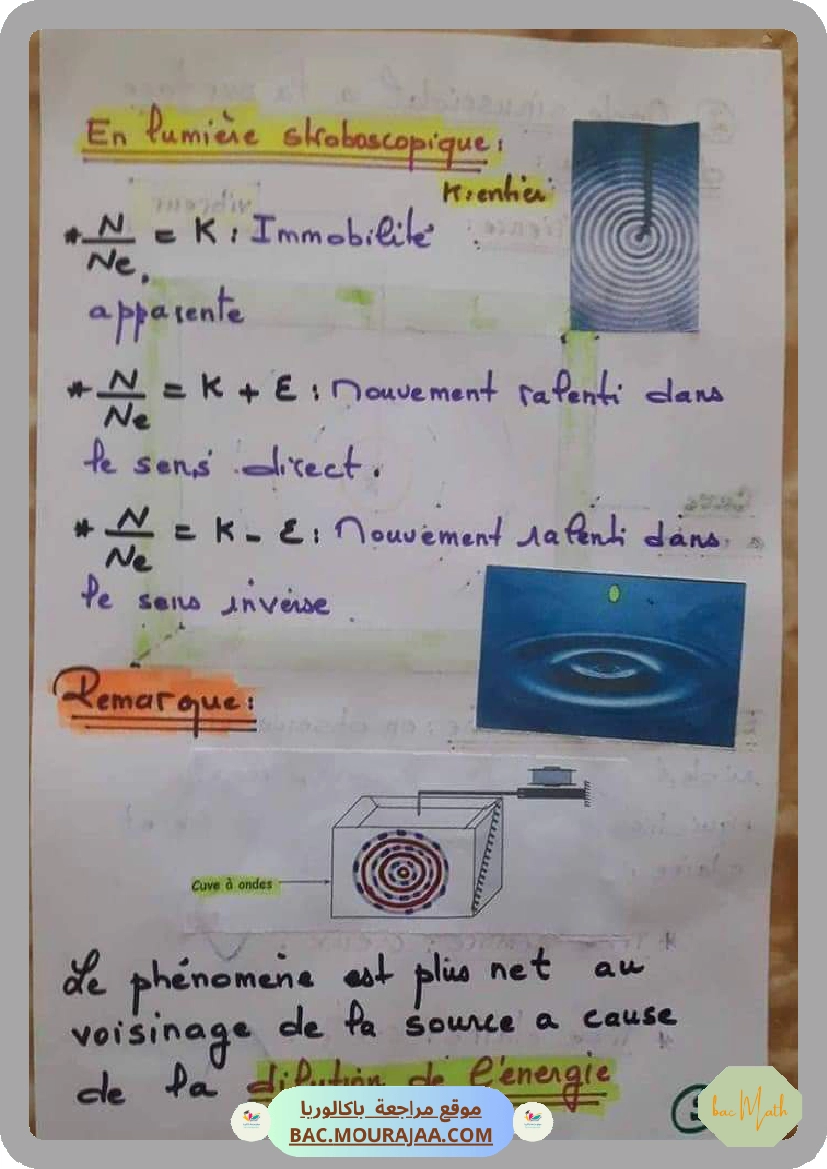 En lumière stroboscopique :
K : entier
* N/Ne = K : Immobilité
apparente
* N/Ne = K + ε : Mouvement ralenti dans
le sens direct.
* N/Ne = K - ε : Mouvement ralenti dans
le sens inverse
Remarque :
Cuve à ondes
Le phénomène est plus net au
voisinage de la source a cause
de la dilution de l'énergie
bac Math
موقع مراجعة باكالوريا
BAC.MOURAJAA.COM